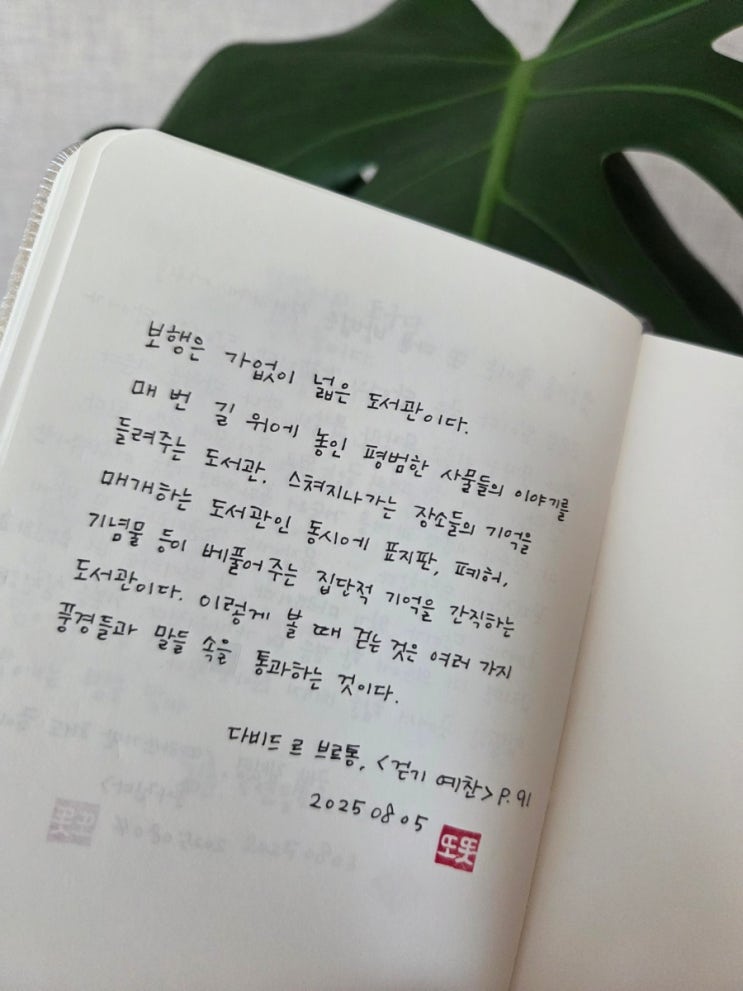 보행은 가없이 넓은 도서관이다.
매 번 길 위에 놓인 평범한 사물들의 이야기를
들려주는 도서관. 스쳐지나가는 장소들의 기억을
매개하는 도서관인 동시에 표지판, 폐허,
기념물 등이 베풀어주는 집단적 기억을 간직하는
도서관이다. 이렇게 볼 때 걷는 것은 여러 가지
풍경들과 말들 속을 통과하는 것이다.
다비드 르 브로통, <걷기 예찬> P. 91
2025 08 05
또똣